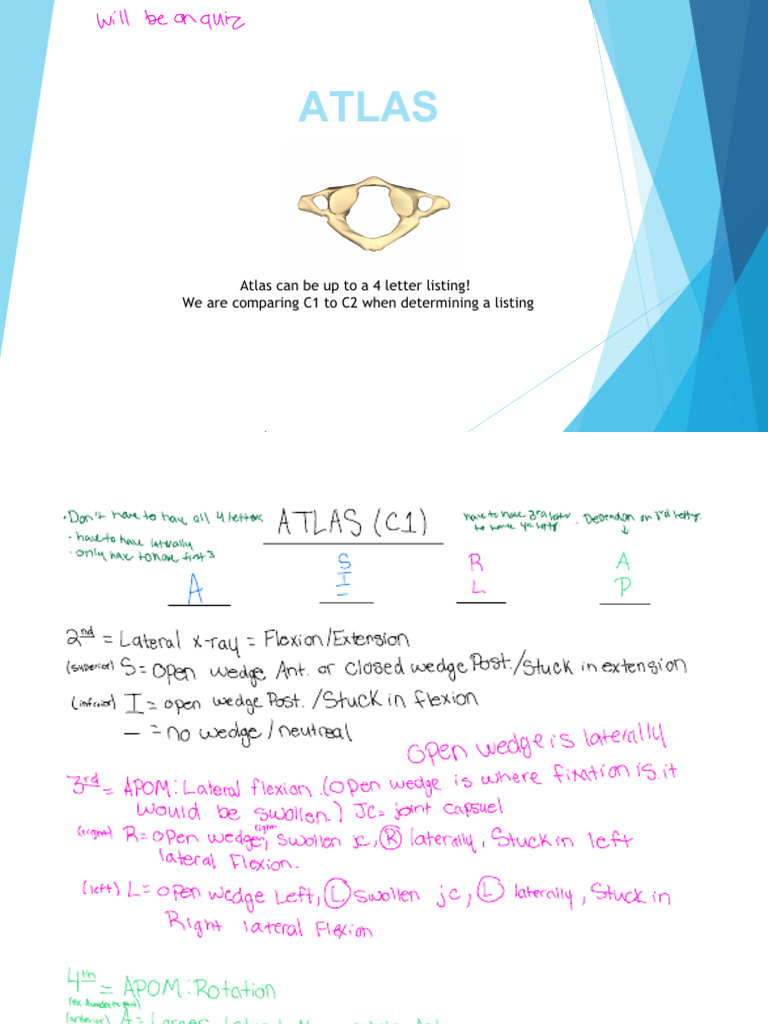 will be on quiz
ATLAS
Atlas can be up to a 4 letter listing!
We are comparing C1 to C2 when determining a listing
• Don't have to have all 4 letters
• have to have laterally
• only have to have first 3
ATLAS (C1)
have to have 3rd letter to have 4th letter
. Depending on 3rd letter.
↓
A
S
I
–
R
L
A
P
2nd = Lateral x-ray = Flexion/Extension
(superior) S = open wedge Ant. or closed wedge Post./Stuck in extension
(inferior) I = open wedge Post./Stuck in flexion
– = no wedge/neutreal
open wedge is laterally
3rd = APOM: Lateral flexion. (open wedge is where fixation is. it
would be swollen.) Jc = joint capsuel
(right) R = open wedge right, swollen jc, R laterally, Stuck in left
lateral Flexion.
(left) L = open wedge Left, L swollen jc, L laterally, Stuck in
Right lateral Flexion
4th = APOM: Rotation
(anterior) A = Larger